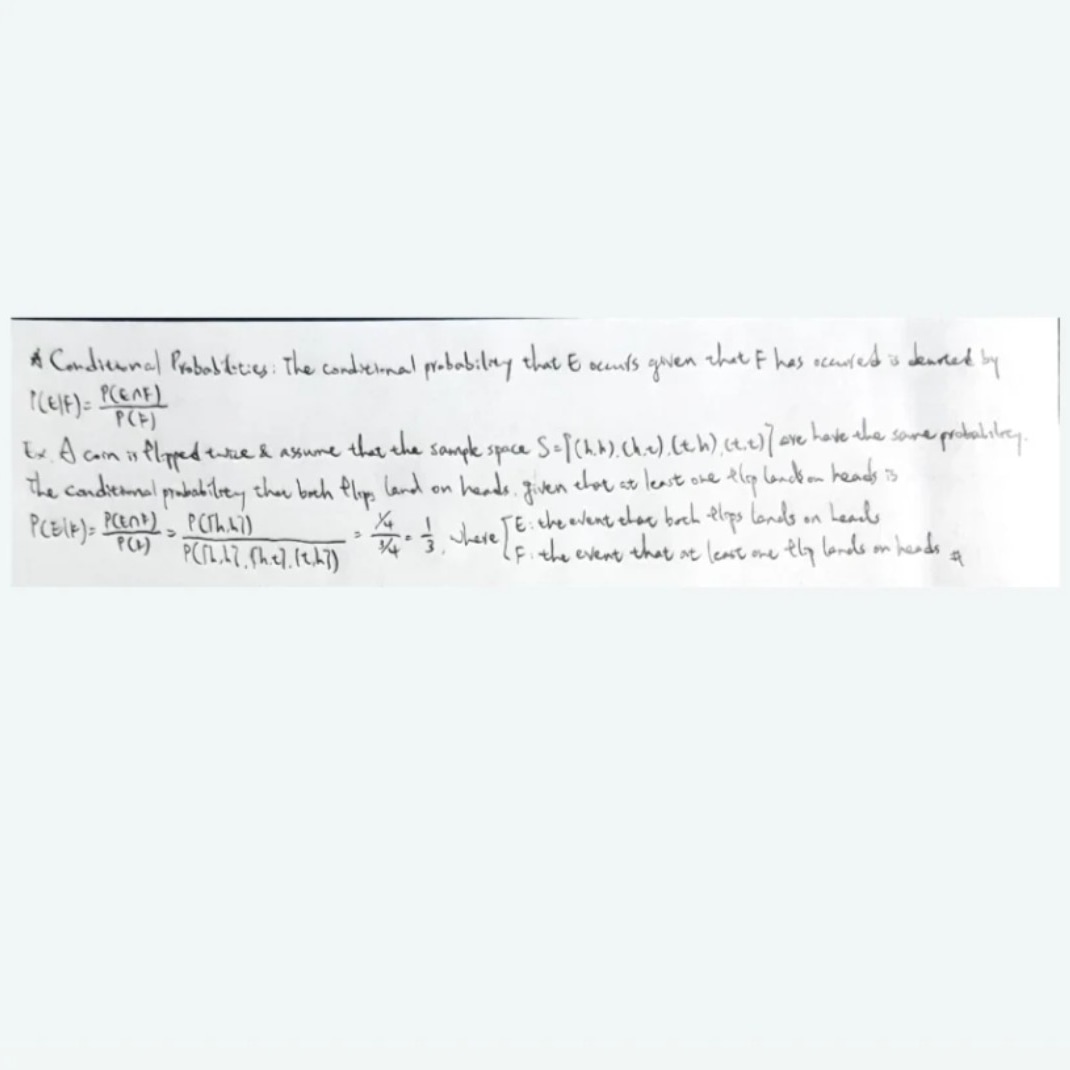 * Conditional Probabilities: The conditional probability that E occurs given that F has occured is denoted by
P(E|F)= P(E∩F)/P(F)
Ex. A coin is flipped twice & assume that the sample space S={(h.h).(h.t).(t.h).(t.t)} are have the same probability.
The conditional probability that both flips land on heads. given that at least one flip lands on heads is
P(E|F)= P(E∩F)/P(F) = P({h.h})/P({h.h}.{h.t}.{t.h}) = 1/4 / 3/4 = 1/3, where { E: the event that both flips lands on heads
F: the event that at least one flip lands on heads #